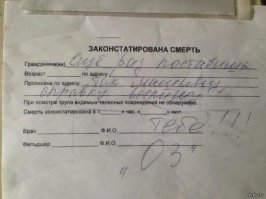 ЗАКОНСТАТИРОВАНА СМЕРТЬ
Гражданина(ки) Ещё раз поставишь
Возраст по адресу
Прописана по адресу там машину,
справку выпишу
При осмотре трупа видимых телесных повреждений не обнаружено.
Смерть законстатирована в « » час. « » мин.
тебе!!!
Врач Ф.И.О.
Фельдшер Ф.И.О.
"03"